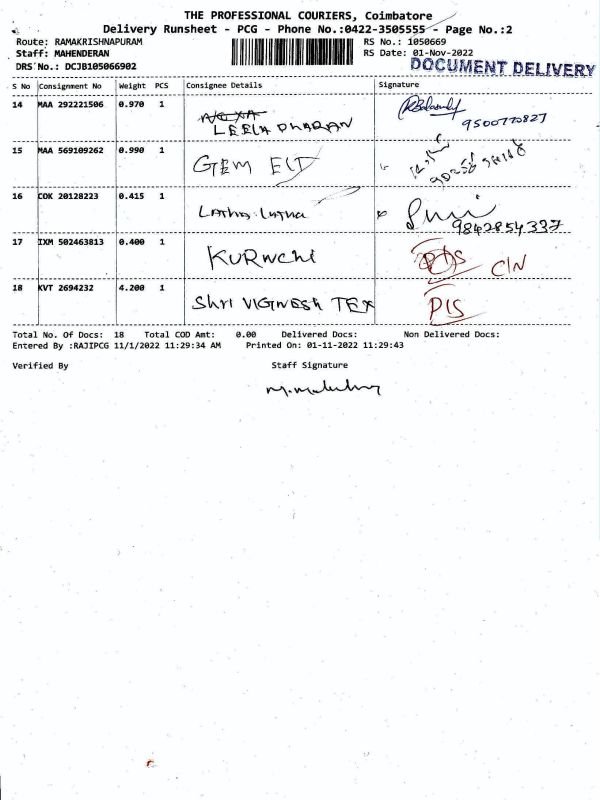 THE PROFESSIONAL COURIERS, Coimbatore
Delivery Runsheet - PCG - Phone No.:0422-3505555 - Page No.:2
Route: RAMAKRISHNAPURAM RS No.: 1050669
Staff: MAHENDERAN RS Date: 01-Nov-2022
DRS No.: DCJB105066902 DOCUMENT DELIVERY
S No Consignment No Weight PCS Consignee Details Signature
14 MAA 292221506 0.970 1
LEELA DHARAN 9500770827
15 MAA 569109262 0.990 1 GEM
16 COK 20128223 0.415 1 Latha Latha
9842854337
17 IXM 502463813 0.400 1 KURUCHI CIN
18 KVT 2694232 4.200 1 Shri VIGNESH TEX PIS
Total No. Of Docs: 18 Total COD Amt: 0.00 Delivered Docs: Non Delivered Docs:
Entered By :RAJIPCG 11/1/2022 11:29:34 AM Printed On: 01-11-2022 11:29:43
Verified By Staff Signature